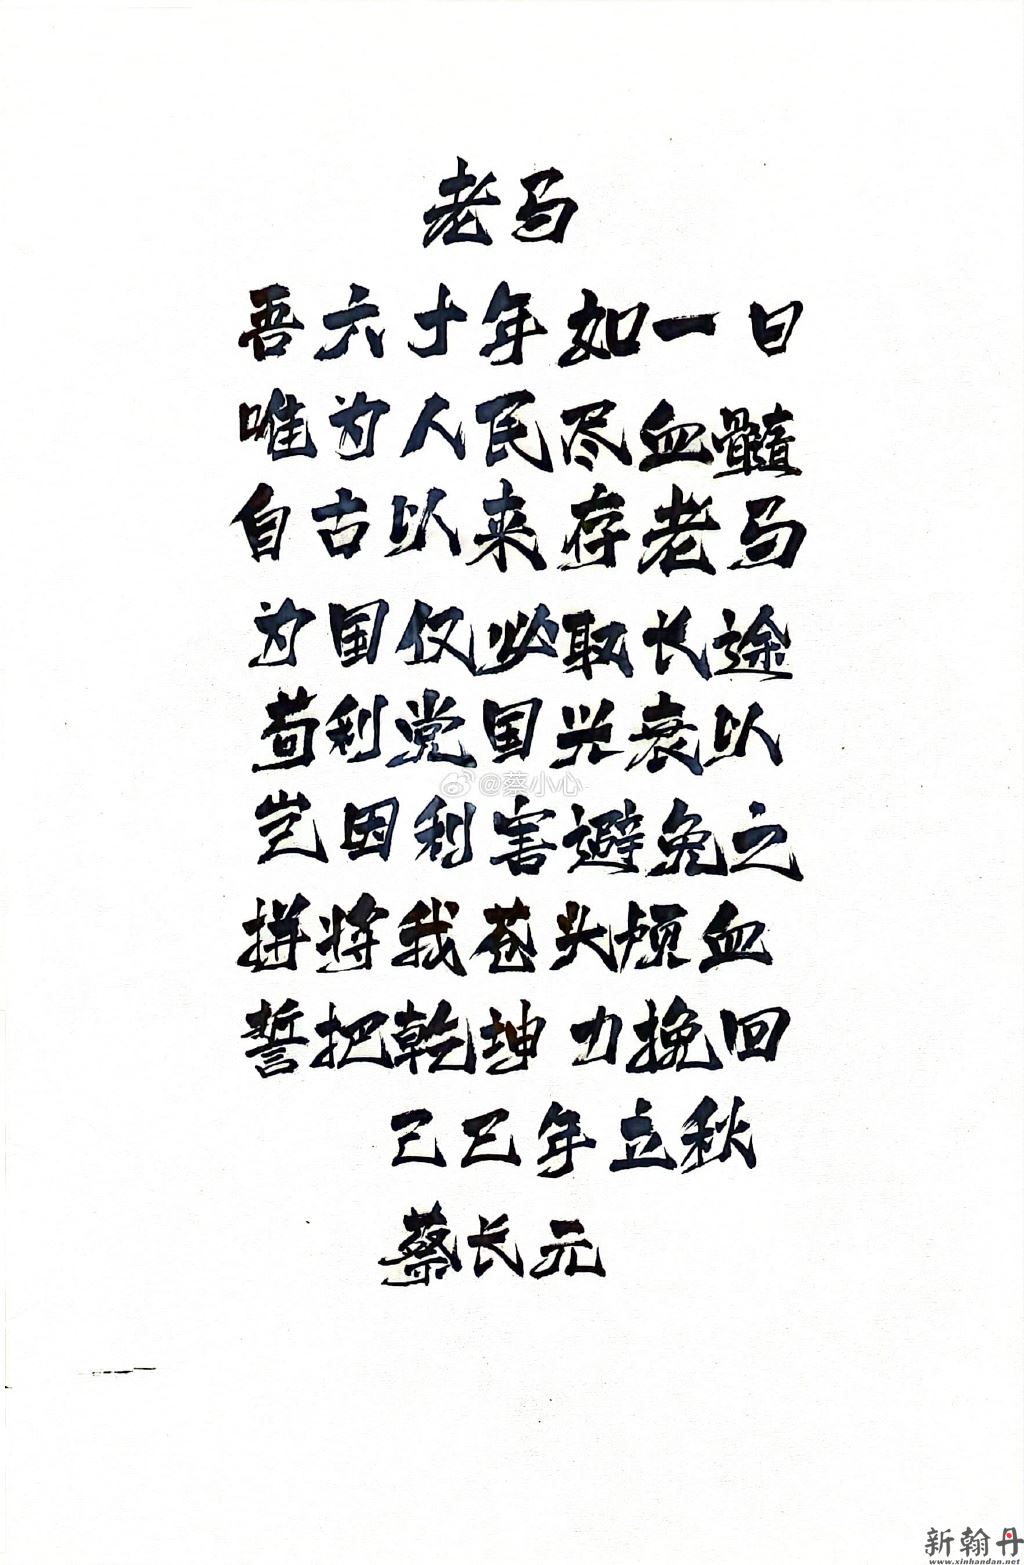 老马
吾六十年如一日
唯为人民尽血髓
自古以来存老马
为国仅必取长途
苟利党国兴衰以
岂因利害避免之
拼将我苍头烦血
誓把乾坤力挽回
己巳年立秋
蔡长元
@蔡小心
新翰丹
www.xinhandan.net